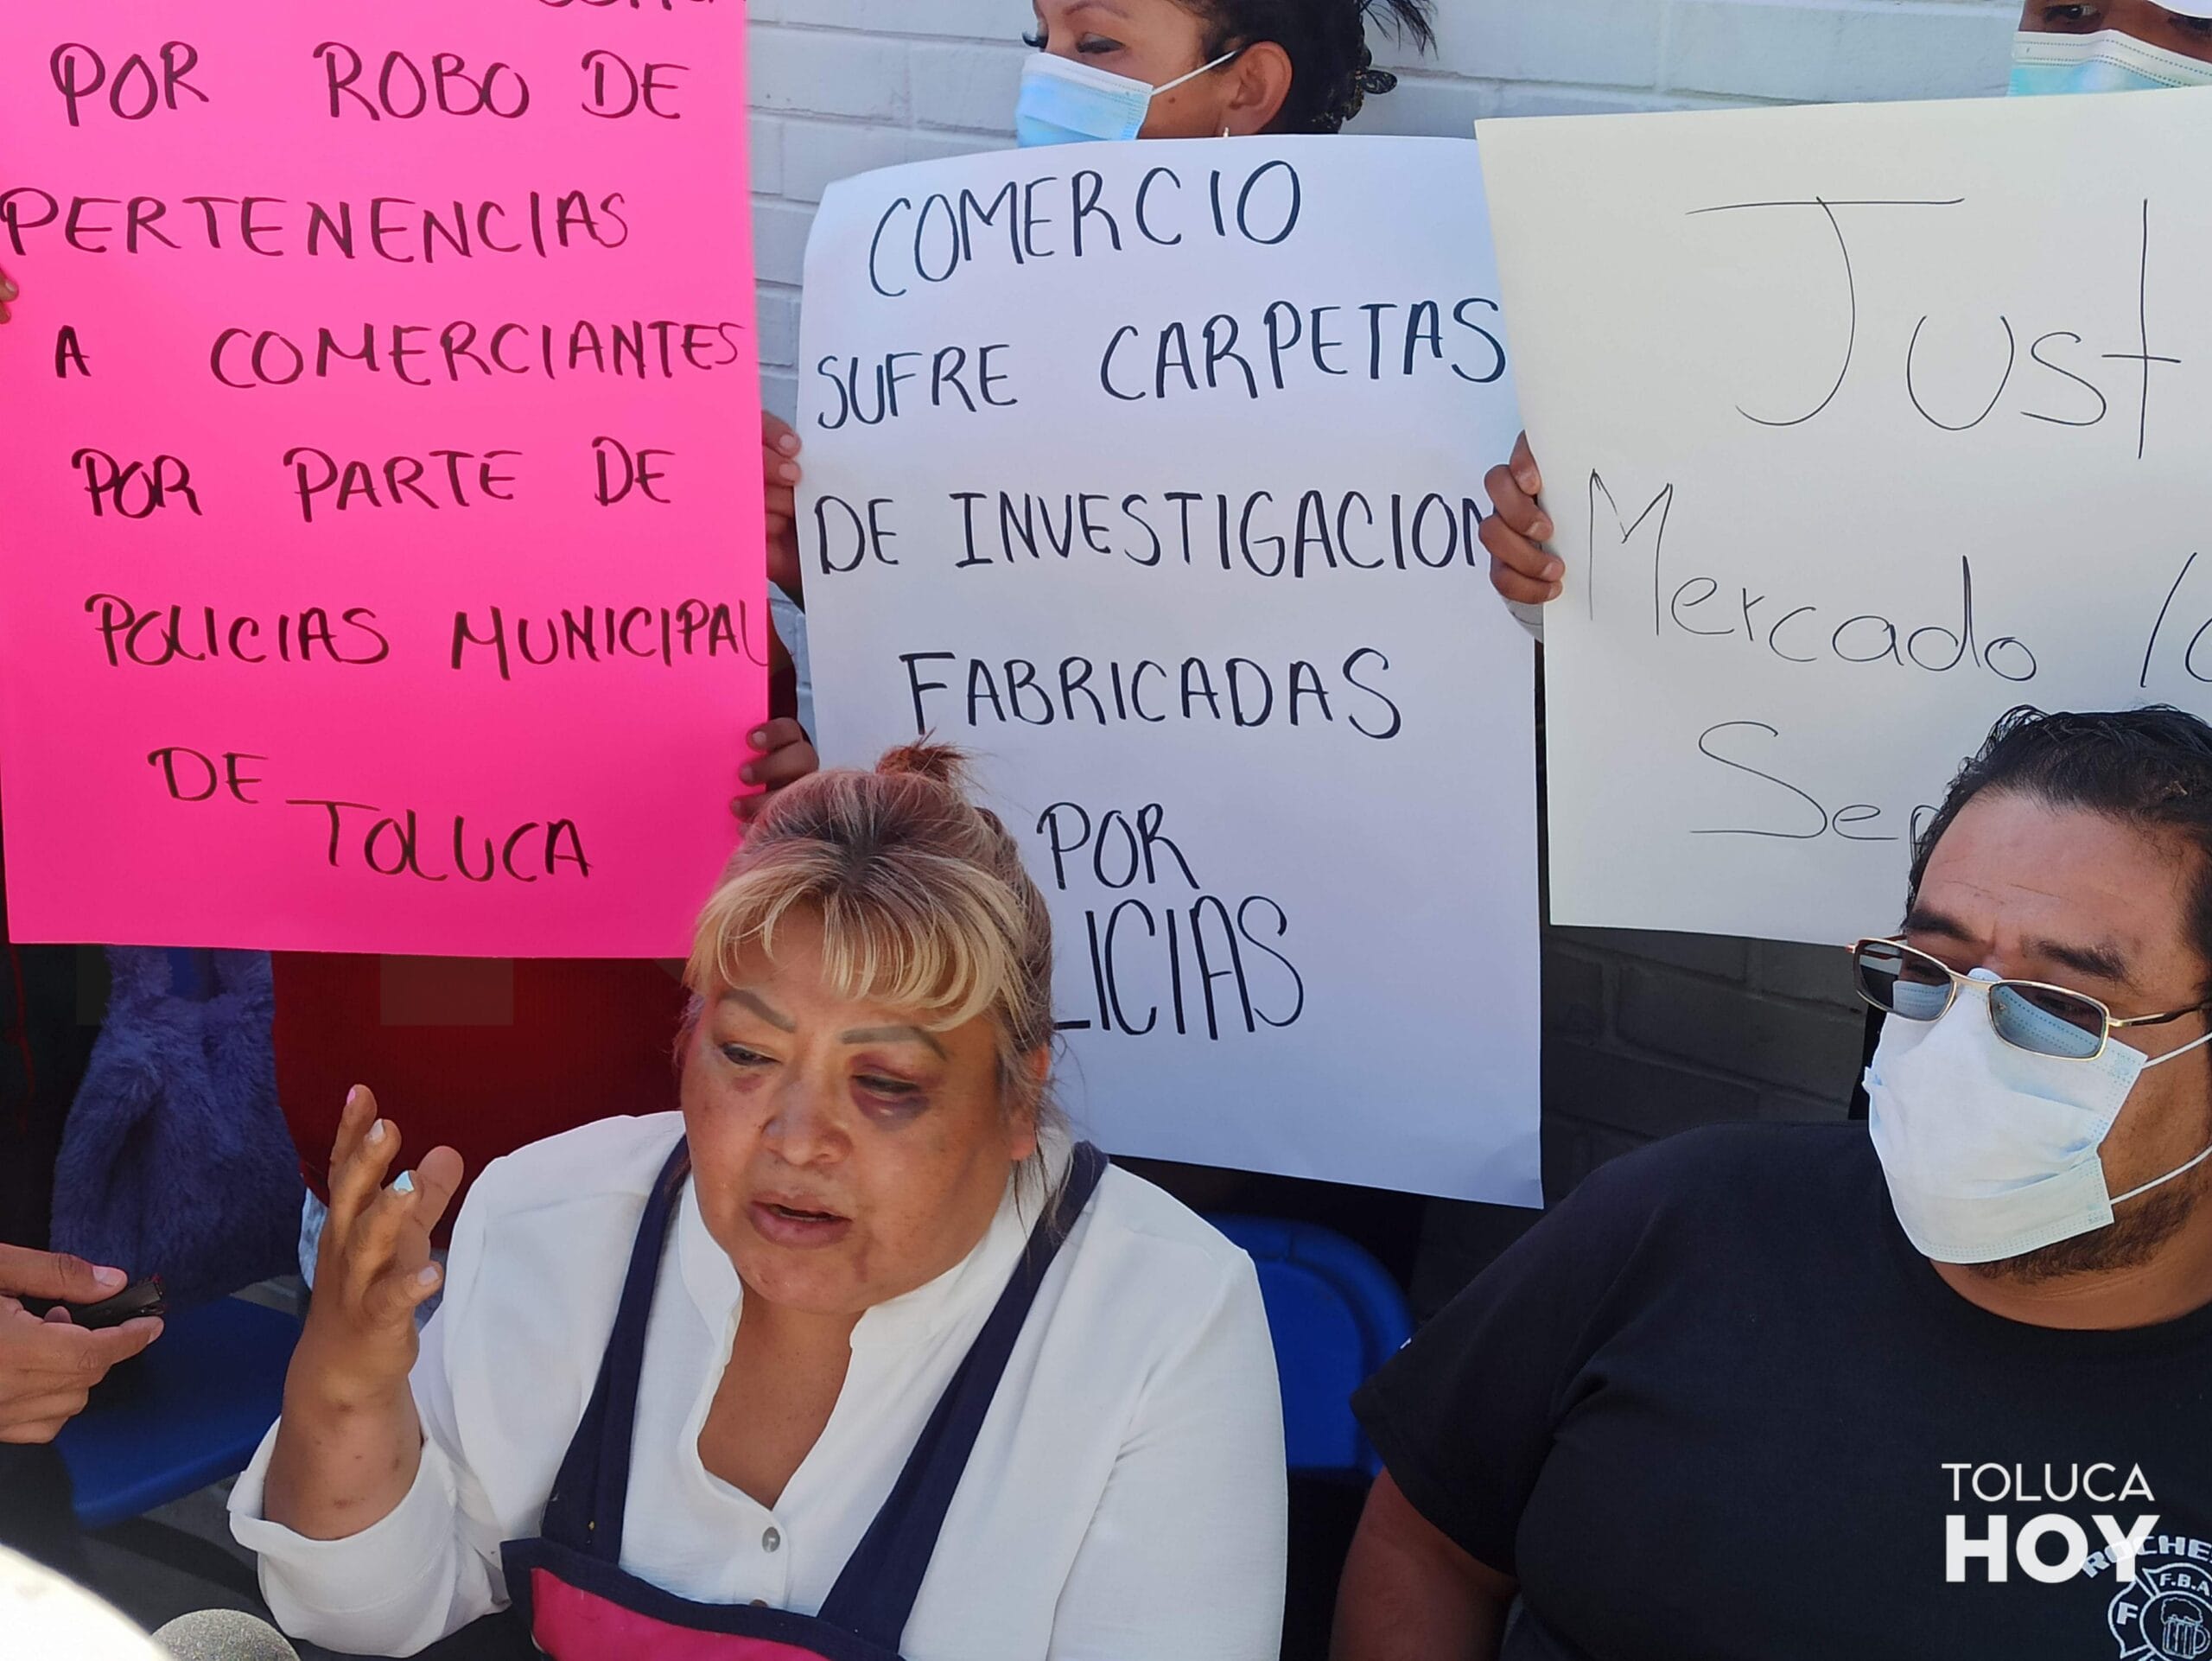 POR ROBO DE
PERTENENCIAS
A COMERCIANTES
POR PARTE DE
POLICIAS MUNICIPAL
DE
TOLUCA
COMERCIO
SUFRE CARPETAS
DE INVESTIGACION
FABRICADAS
POR
LICIAS
Just
Mercado
TOLUCA
HOY
F.B.A
F